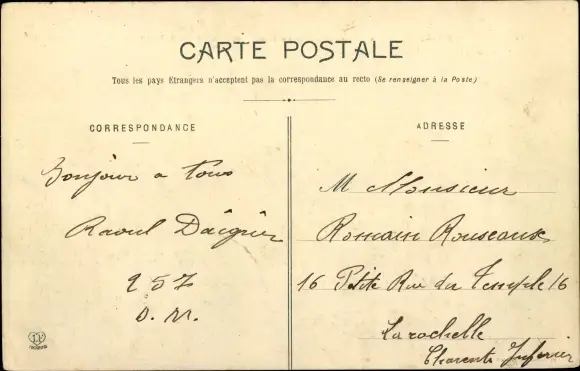 CARTE POSTALE
Tous les pays Etrangers n'acceptent pas la correspondance au recto (Se renseigner à la Poste)
CORRESPONDANCE
Bonjour a tous
Raoul Daignier
257
D.M.
ADRESSE
M Monsieur
Romain Rousseaux
16 Petite Rue du Temple 16
Larochelle
Charente Inferier